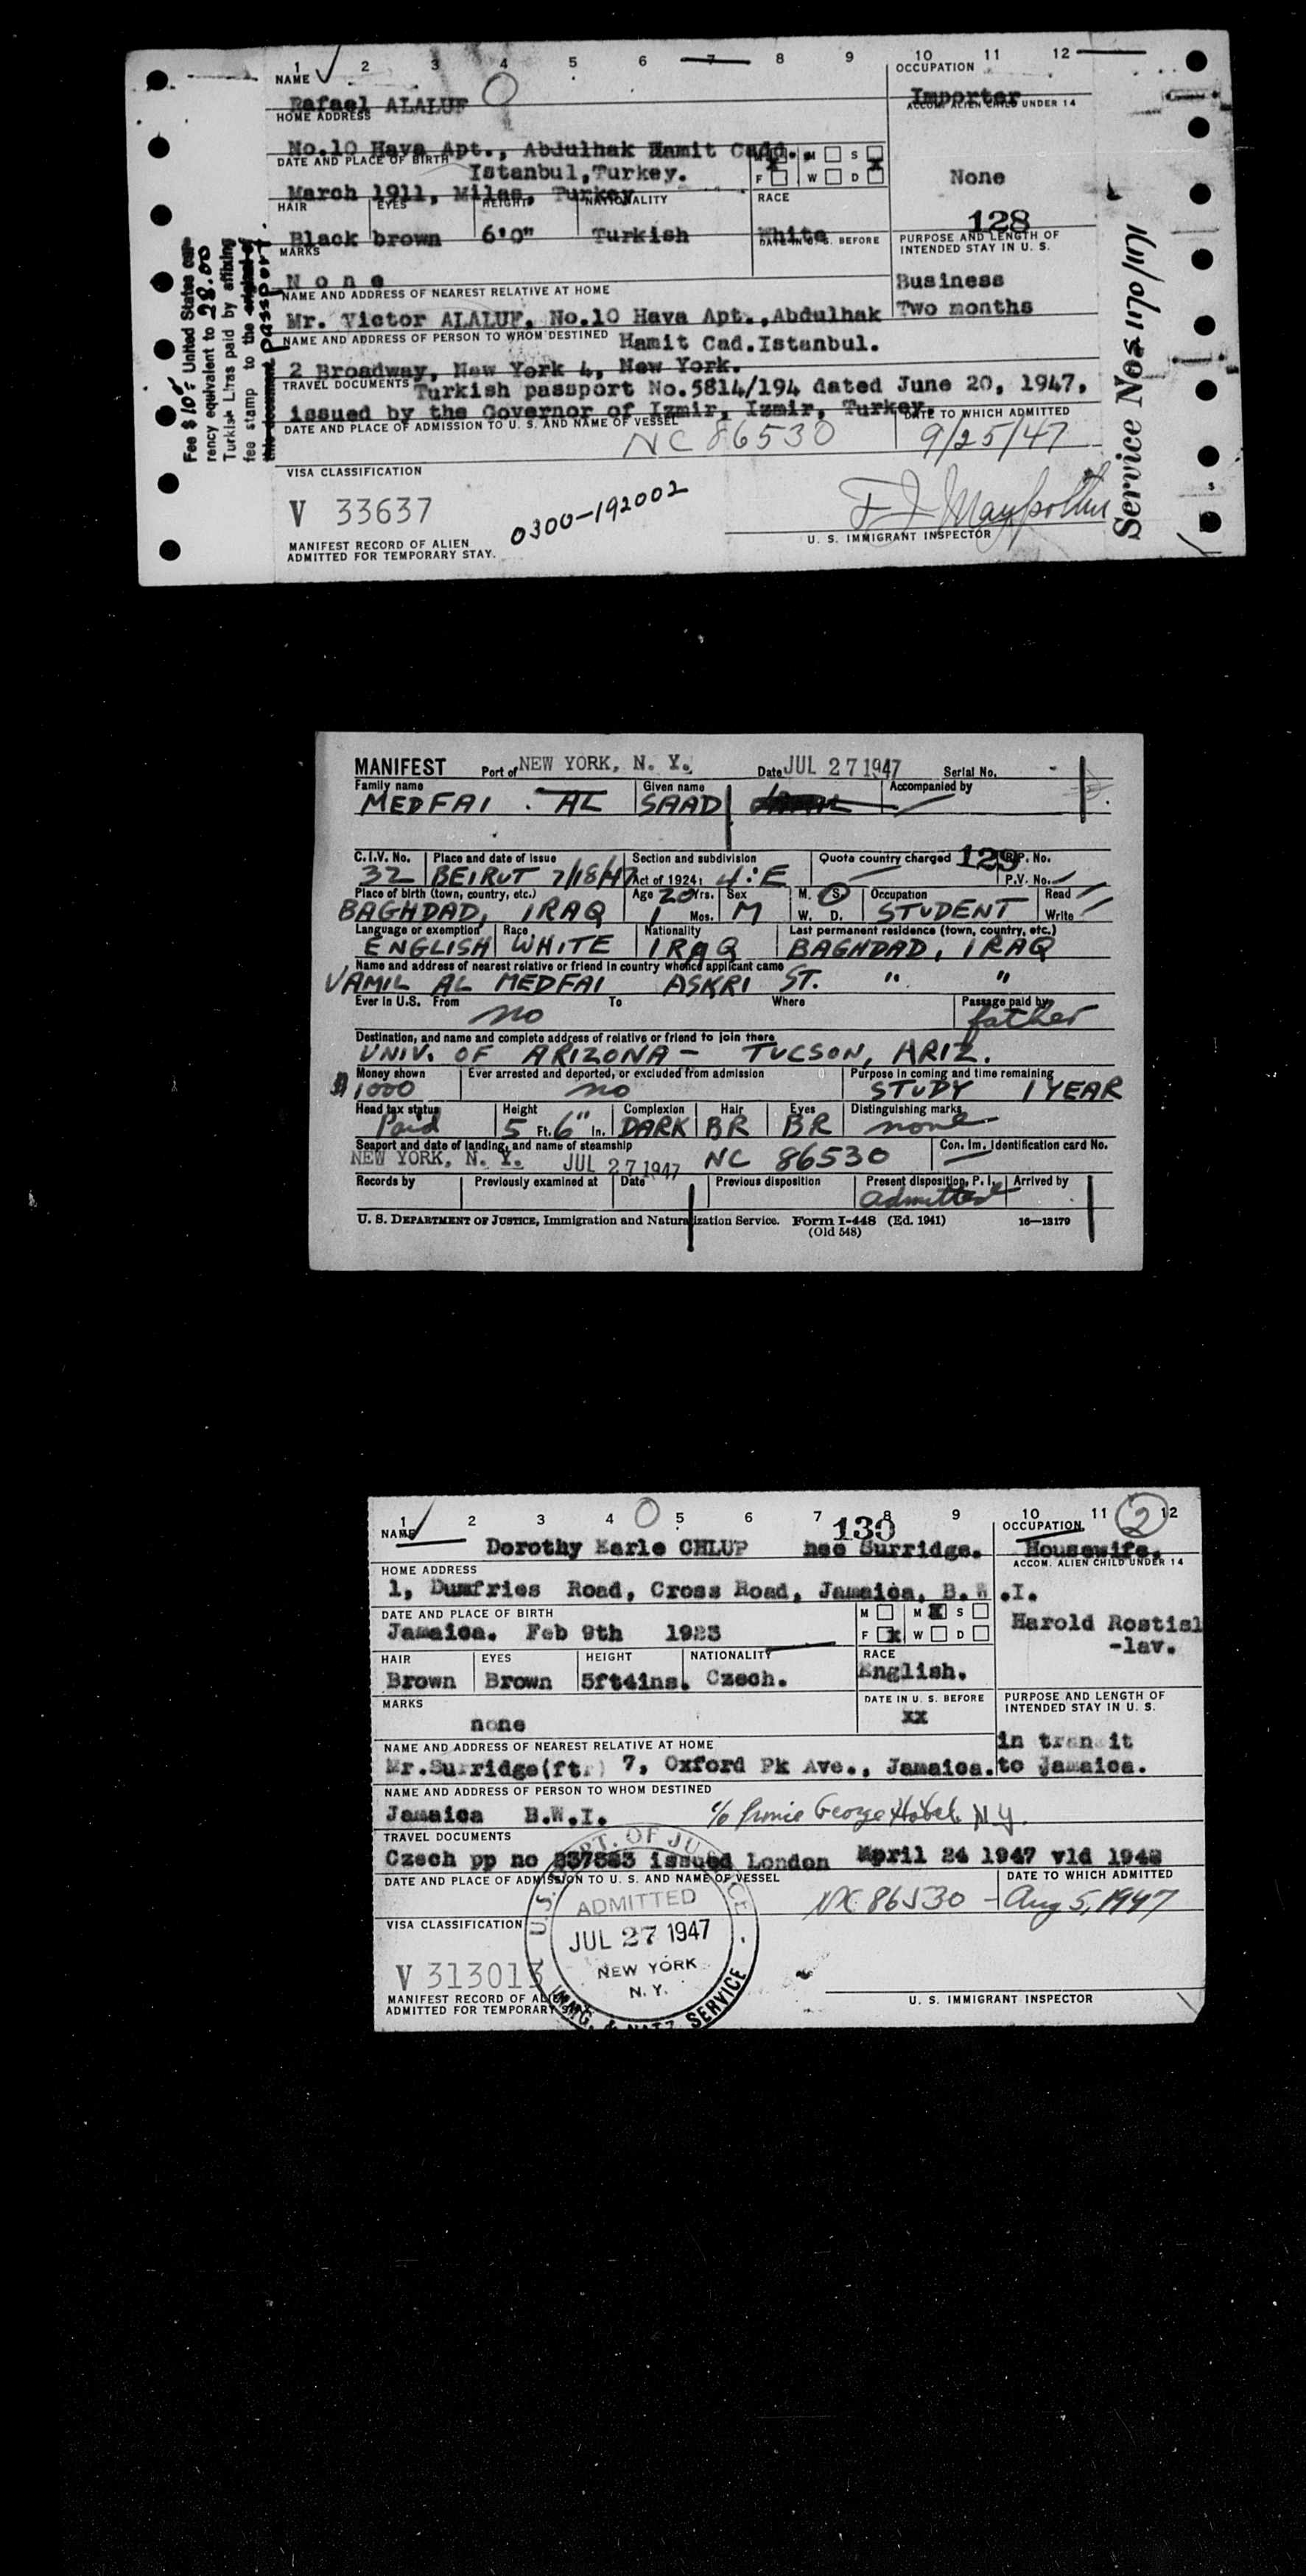 1 2 3 4 5 6 7 8 9 10 11 12
NAME OCCUPATION
Rafael ALALUF Importer
HOME ADDRESS ACCOM. ALIEN CHILD UNDER 14
No.10 Hava Apt., Abdulhak Hamit Cadd.,
DATE AND PLACE OF BIRTH M S
Istanbul,Turkey. F W D None
March 1911, Milas, Turkey
HAIR EYES HEIGHT NATIONALITY RACE 128
Black brown 6'0" Turkish White
MARKS DATE IN U. S. BEFORE PURPOSE AND LENGTH OF INTENDED STAY IN U. S.
None Business
NAME AND ADDRESS OF NEAREST RELATIVE AT HOME
Mr. Victor ALALUF, No.10 Hava Apt.,Abdulhak Two months
NAME AND ADDRESS OF PERSON TO WHOM DESTINED Hamit Cad.Istanbul.
2 Broadway, New York 4, New York.
TRAVEL DOCUMENTS Turkish passport No.5814/194 dated June 20, 1947,
issued by the Governor of Izmir, Izmir, Turkey.
DATE AND PLACE OF ADMISSION TO U. S. AND NAME OF VESSEL DATE TO WHICH ADMITTED
NC 86530 9/25/47
VISA CLASSIFICATION
V 33637 0300-192002
MANIFEST RECORD OF ALIEN
ADMITTED FOR TEMPORARY STAY.
U. S. IMMIGRANT INSPECTOR
Fee $10.- United States cur-
rency equivalent to 28.00
Turkish Liras paid by affixing
fee stamp to the original of
this document passport.
Service Nos 1170/1171
MANIFEST Port of NEW YORK, N. Y. Date JUL 27 1947 Serial No.
Family name Given name Accompanied by
MEDFAI . AL SAAD
C.I.V. No. Place and date of issue Section and subdivision Quota country charged 129 R.P. No.
32 BEIRUT 7/18/47 Act of 1924: 4:E P.V. No.
Place of birth (town, country, etc.) Age 20 Yrs. Sex M. S. Occupation Read
BAGHDAD, IRAQ 1 Mos. M W. D. STUDENT Write
Language or exemption Race Nationality Last permanent residence (town, country, etc.)
ENGLISH WHITE IRAQ BAGHDAD, IRAQ
Name and address of nearest relative or friend in country whence applicant came
VAMIL AL MEDFAI ASKRI ST. " "
Ever in U.S. From To Where Passage paid by
no father
Destination, and name and complete address of relative or friend to join there
UNIV. OF ARIZONA - TUCSON, ARIZ.
Money shown Ever arrested and deported, or excluded from admission Purpose in coming and time remaining
$1000 no STUDY 1 YEAR
Head tax status Height Complexion Hair Eyes Distinguishing marks
Paid 5 Ft. 6" In. DARK BR BR none
Seaport and date of landing, and name of steamship Con. Im. Identification card No.
NEW YORK, N. Y. JUL 27 1947 NC 86530
Records by Previously examined at Date Previous disposition Present disposition, P. I. Arrived by
admitted
U. S. DEPARTMENT OF JUSTICE, Immigration and Naturalization Service. Form I-448 (Ed. 1941) 16—13179
(Old 548)
1 2 3 4 5 6 7 8 9 10 11 12
NAME 130 OCCUPATION 2
Dorothy Earle CHLUP nee Surridge. Housewife.
HOME ADDRESS ACCOM. ALIEN CHILD UNDER 14
1, Dumfries Road, Cross Road, Jamaica, B.W.I.
DATE AND PLACE OF BIRTH M M S Harold Rostisl
Jamaica. Feb 9th 1923 F W D -lav.
HAIR EYES HEIGHT NATIONALITY RACE
Brown Brown 5ft4ins. Czech. English.
MARKS DATE IN U. S. BEFORE PURPOSE AND LENGTH OF INTENDED STAY IN U. S.
none xx
NAME AND ADDRESS OF NEAREST RELATIVE AT HOME in transit
Mr.Surridge(ftr) 7, Oxford Pk Ave., Jamaica. to Jamaica.
NAME AND ADDRESS OF PERSON TO WHOM DESTINED
Jamaica B.W.I. c/o Prince George Hotel. N.Y.
TRAVEL DOCUMENTS
Czech pp no issued London April 24 1947 vld
DATE AND PLACE OF ADMISSION TO U. S. AND NAME OF VESSEL DATE TO WHICH ADMITTED
NC 86530 - Aug 5, 1947
VISA CLASSIFICATION
V 313013
MANIFEST RECORD OF ALIEN
ADMITTED FOR TEMPORARY STAY.
U. S. IMMIGRANT INSPECTOR
U.S. DEPT. OF JUSTICE
ADMITTED
JUL 27 1947
NEW YORK
N. Y.
IMMG. & NATZ. SERVICE